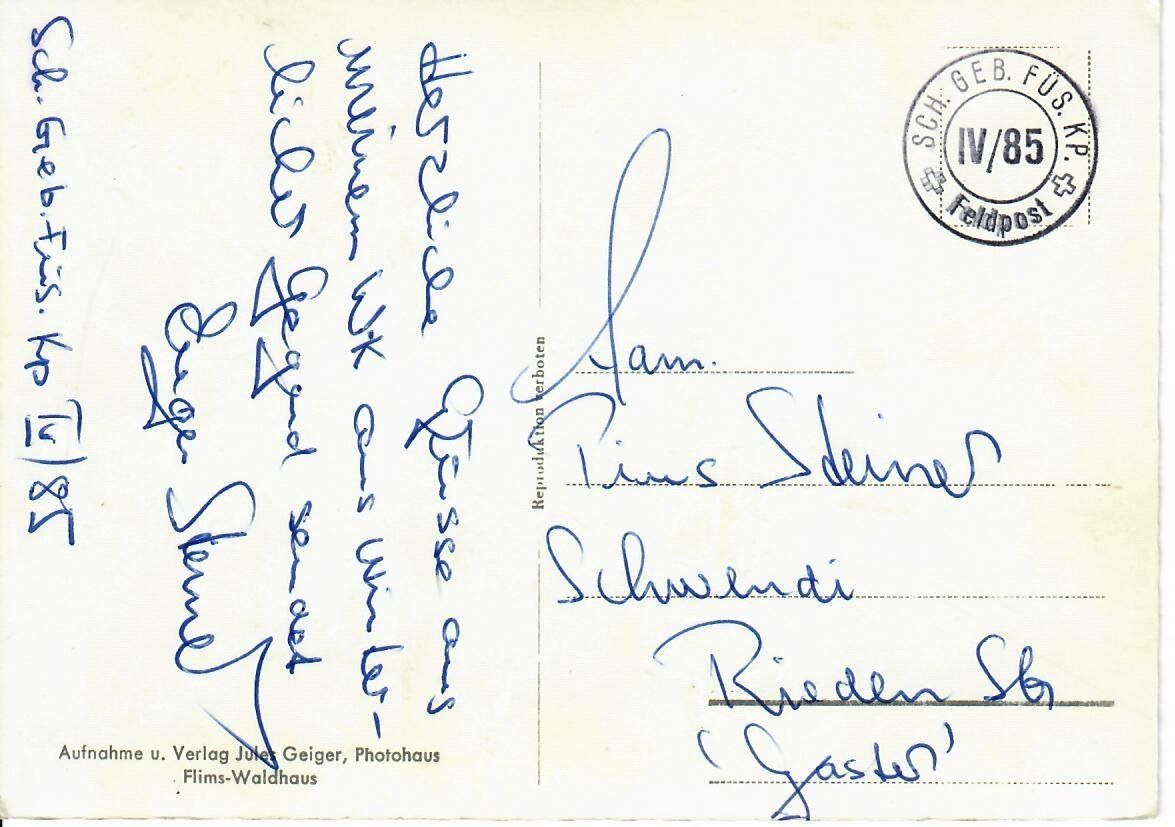 Herzliche Grüsse aus
meinem WK aus winter-
licher Gegend sendet
Steiner
Sch. Geb. Füs. Kp IV/85
SCH. GEB. FÜS. KP.
IV/85
Feldpost
Fam.
Pius Steiner
Schwendi
Rieden SG
(Gaster)
Reproduktion verboten
Aufnahme u. Verlag Jules Geiger, Photohaus
Flims-Waldhaus